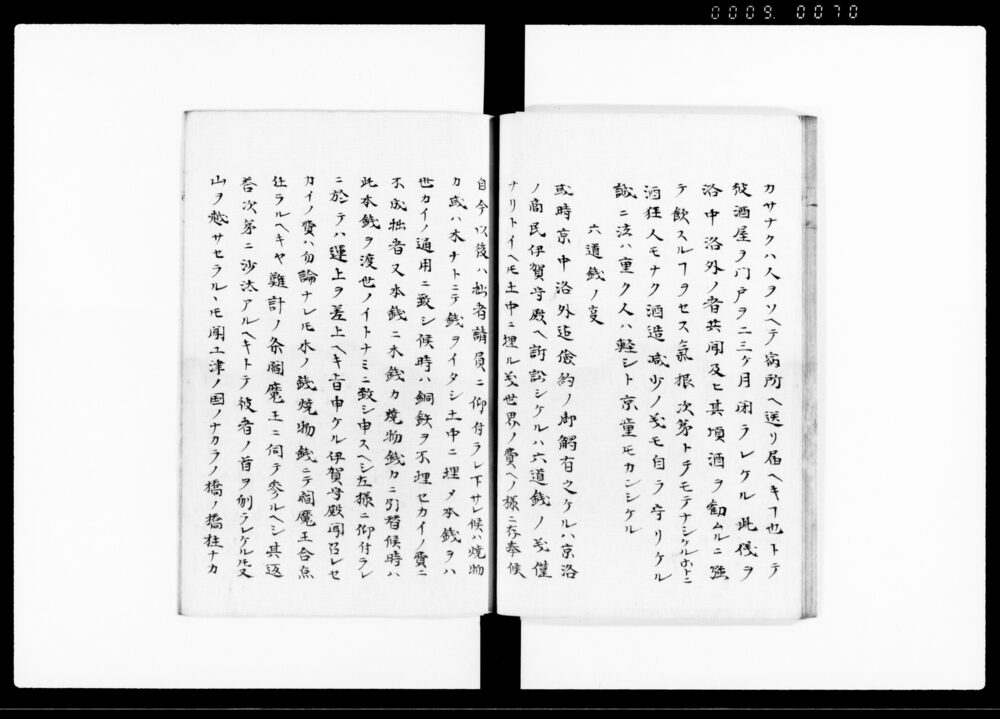 0009. 0070
カサナクハ人ヲソヘテ病所ヘ送リ届ヘキヿ也トテ
彼酒屋ヲハ門戸ヲ二三ケ月閉ラレケル此儀ヲ
洛中洛外ノ者共聞及ヒ其頃酒ヲ勧ムルニ強
テ飲スルヿヲセス氣根次第トテモテナシケルホトニ
酒狂人モナク酒造減少ノ義モ自ラ守リケル
誠ニ法ハ重ク人ハ軽シト京童モカンシケル
六道銭ノ変
或時京中洛外迄倹約ノ御觸有之ケルハ京洛
ノ商民伊賀守殿ヘ訴訟シケルハ六道銭ノ義僅
ナリトイヘ𪜈土中ニ埋ル義世界ノ費ヘノ様ニ存奉候
自今以後ハ拙者請負ニ仰付ラレ下サレ候ハ焼物
カ或ハ木ナトニテ銭ヲイタシ土中ニ埋メ本銭ヲハ
世カイノ通用ニ致シ候時ハ銅鉄ヲ不埋セカイノ費ニ
不成拙者又本銭ニ木銭カ焼物銭カニ引替候時ハ
此本銭ヲ渡世ノイトナミニ致シ申スヘシ左様ニ仰付ラレ
ニ於テハ運上ヲ差上ヘキ旨申ケル伊賀守殿聞召レセ
カイノ費ハ勿論ナレ𪜈木ノ銭焼物銭ニテ閻魔王合点
仕ラルヘキヤ難計ノ条閻魔王ニ伺テ参ルヘシ其返
答次第ニ沙汰アルヘキトテ彼者ノ首ヲ刎ラレケル𪜈又
山ヲ越サセラル丶𪜈聞エ津ノ国ノナカラノ橋ノ橋柱ナカ